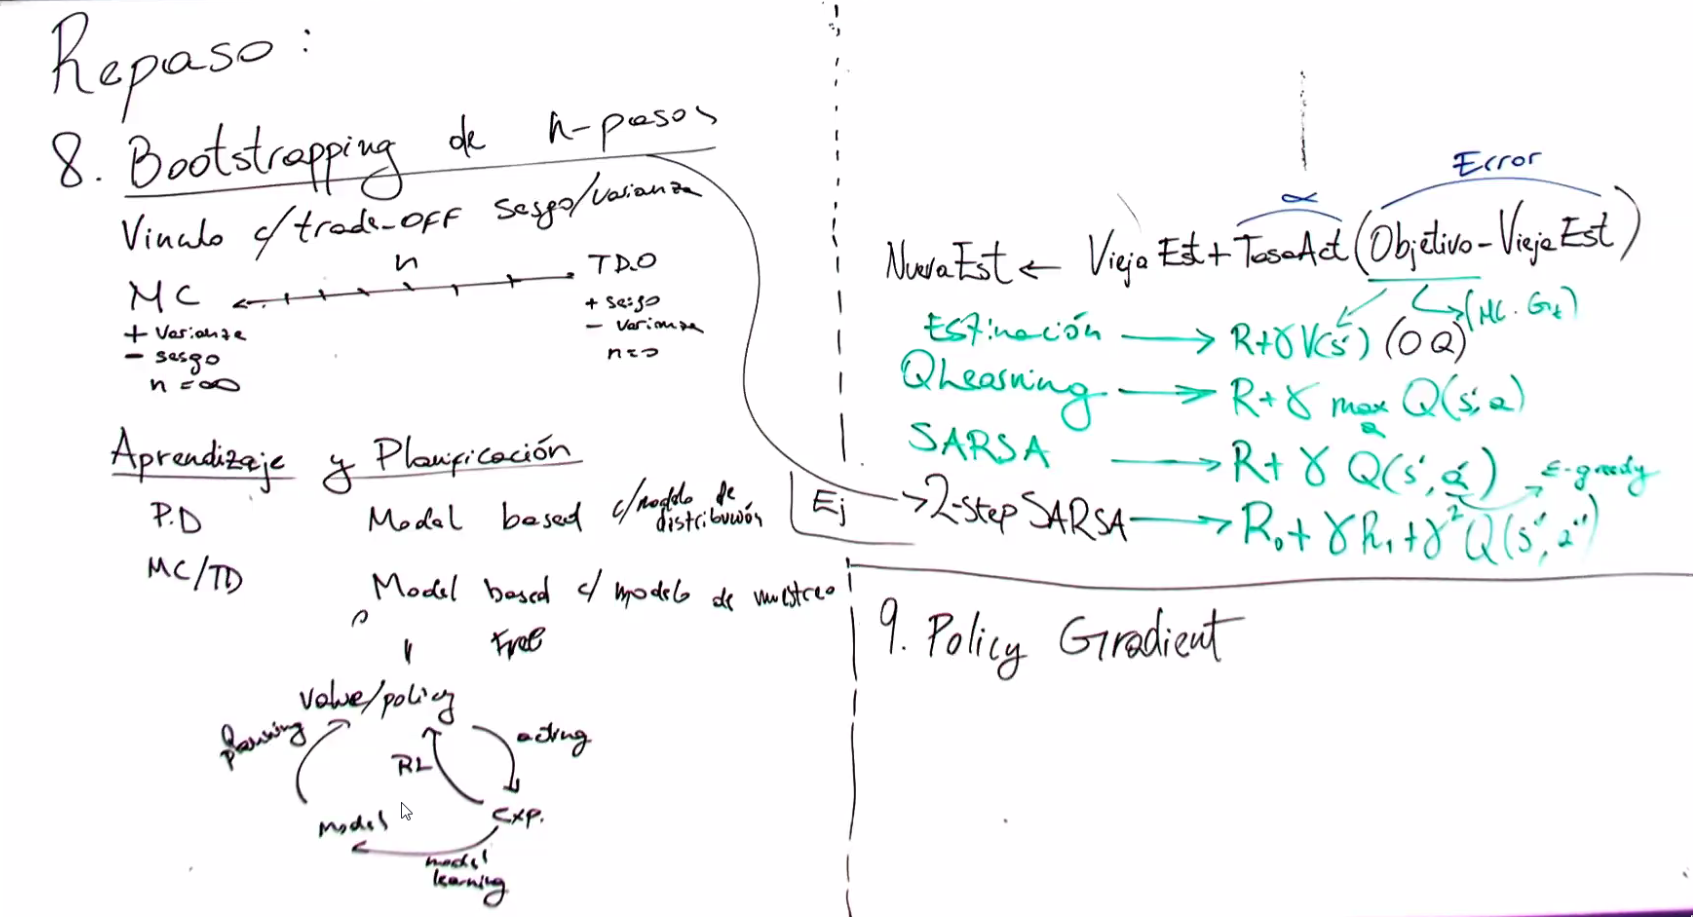 Repaso:
8. Bootstrapping de n-pasos
Vínculo c/trade-OFF sesgo/varianza
n
MC
TD.0
+ varianza
- sesgo
n = ∞
+ sesgo
- varianza
n=0
Aprendizaje y Planificación
P.D
Model based c/modelo de distribución
MC/TD
Model based c/ modelo de muestreo
o
Free
Value/policy
planning
acting
RL
Model
exp.
model
learning
Error
α
NuevaEst ← ViejaEst + TasaAct (Objetivo - ViejaEst)
(MC. Gt)
Estimación → R+γV(s') (O Q)
QLearning → R+γ max Q(s',a)
a
SARSA → R+γ Q(s',a')
ε-greedy
Ej → 2-step SARSA → R₀+γR₁+γ²Q(s'',a'')
9. Policy Gradient